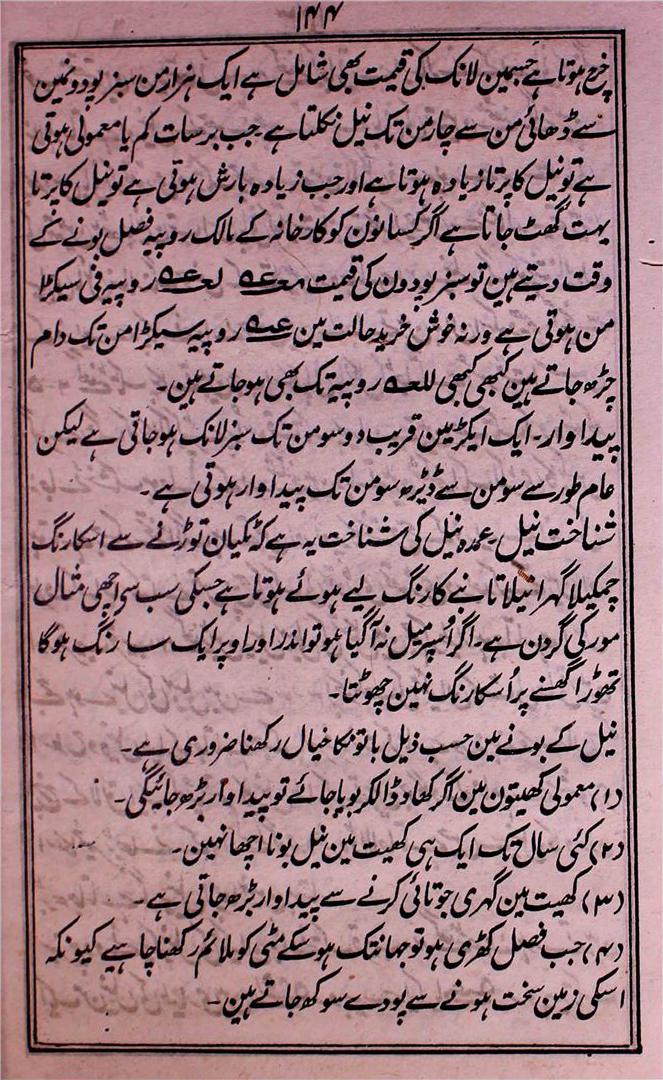 ۱۴۴
خرچ ہوتا ہے جسمین لانک کی قیمت بھی شامل ہے ایک ہزار من سبز پودونمین
سے ڈھائی من سے چار من تک نیل نکلتا ہے جب برسات کم یا معمولی ہوتی
ہے تو نیل کا پرتا زیادہ ہوتا ہے اور جب زیادہ بارش ہوتی ہے تو نیل کا پرتا
بہت گھٹ جاتا ہے اگر کسانون کو کارخانہ کے مالک روپیہ فصل بونے کے
وقت دیتے ہین تو سبز پودون کی قیمت روپیہ فی سیکڑا
من ہوتی ہے ورنہ خوش خرید حالت مین روپیہ سیکڑا من تک دام
چڑھ جاتے ہین کبھی کبھی روپیہ تک بھی ہو جاتے ہین۔
پیداوار۔ ایک ایکڑ مین قریب دو سو من تک سبز لانک ہو جاتی ہے لیکن
عام طور سے سو من سے ڈیڑہ سو من تک پیداوار ہوتی ہے۔
شناخت نیل۔ عمدہ نیل کی شناخت یہ ہے کہ ٹکیان توڑنے سے اسکا رنگ
چمکیلا گہرا نیلا تانبے کا رنگ لیے ہوئے ہوتا ہے جسکی سب سی اچھی مثال
مور کی گردن ہے۔ اگر اُسپر میل نہ آگیا ہو تو اندر اور اوپر ایک سا رنگ ہوگا
تھوڑا گھسنے پر اُسکا رنگ نہین چھوٹتا۔
نیل کے بونے مین حسب ذیل باتونکا خیال رکھنا ضروری ہے۔
(۱) معمولی کھیتون مین اگر کھاد ڈالکر بویا جائے تو پیداوار بڑھ جائیگی۔
(۲) کئی سال تک ایک ہی کھیت مین نیل بونا اچھا نہین۔
(۳) کھیت مین گہری جوتائی کرنے سے پیداوار بڑھ جاتی ہے۔
(۴) جب فصل کھڑی ہو تو جہانتک ہو سکے مٹی کو ملائم رکھنا چاہیے کیونکہ
اسکی زمین سخت ہونے سے پودے سوکھ جاتے ہین۔